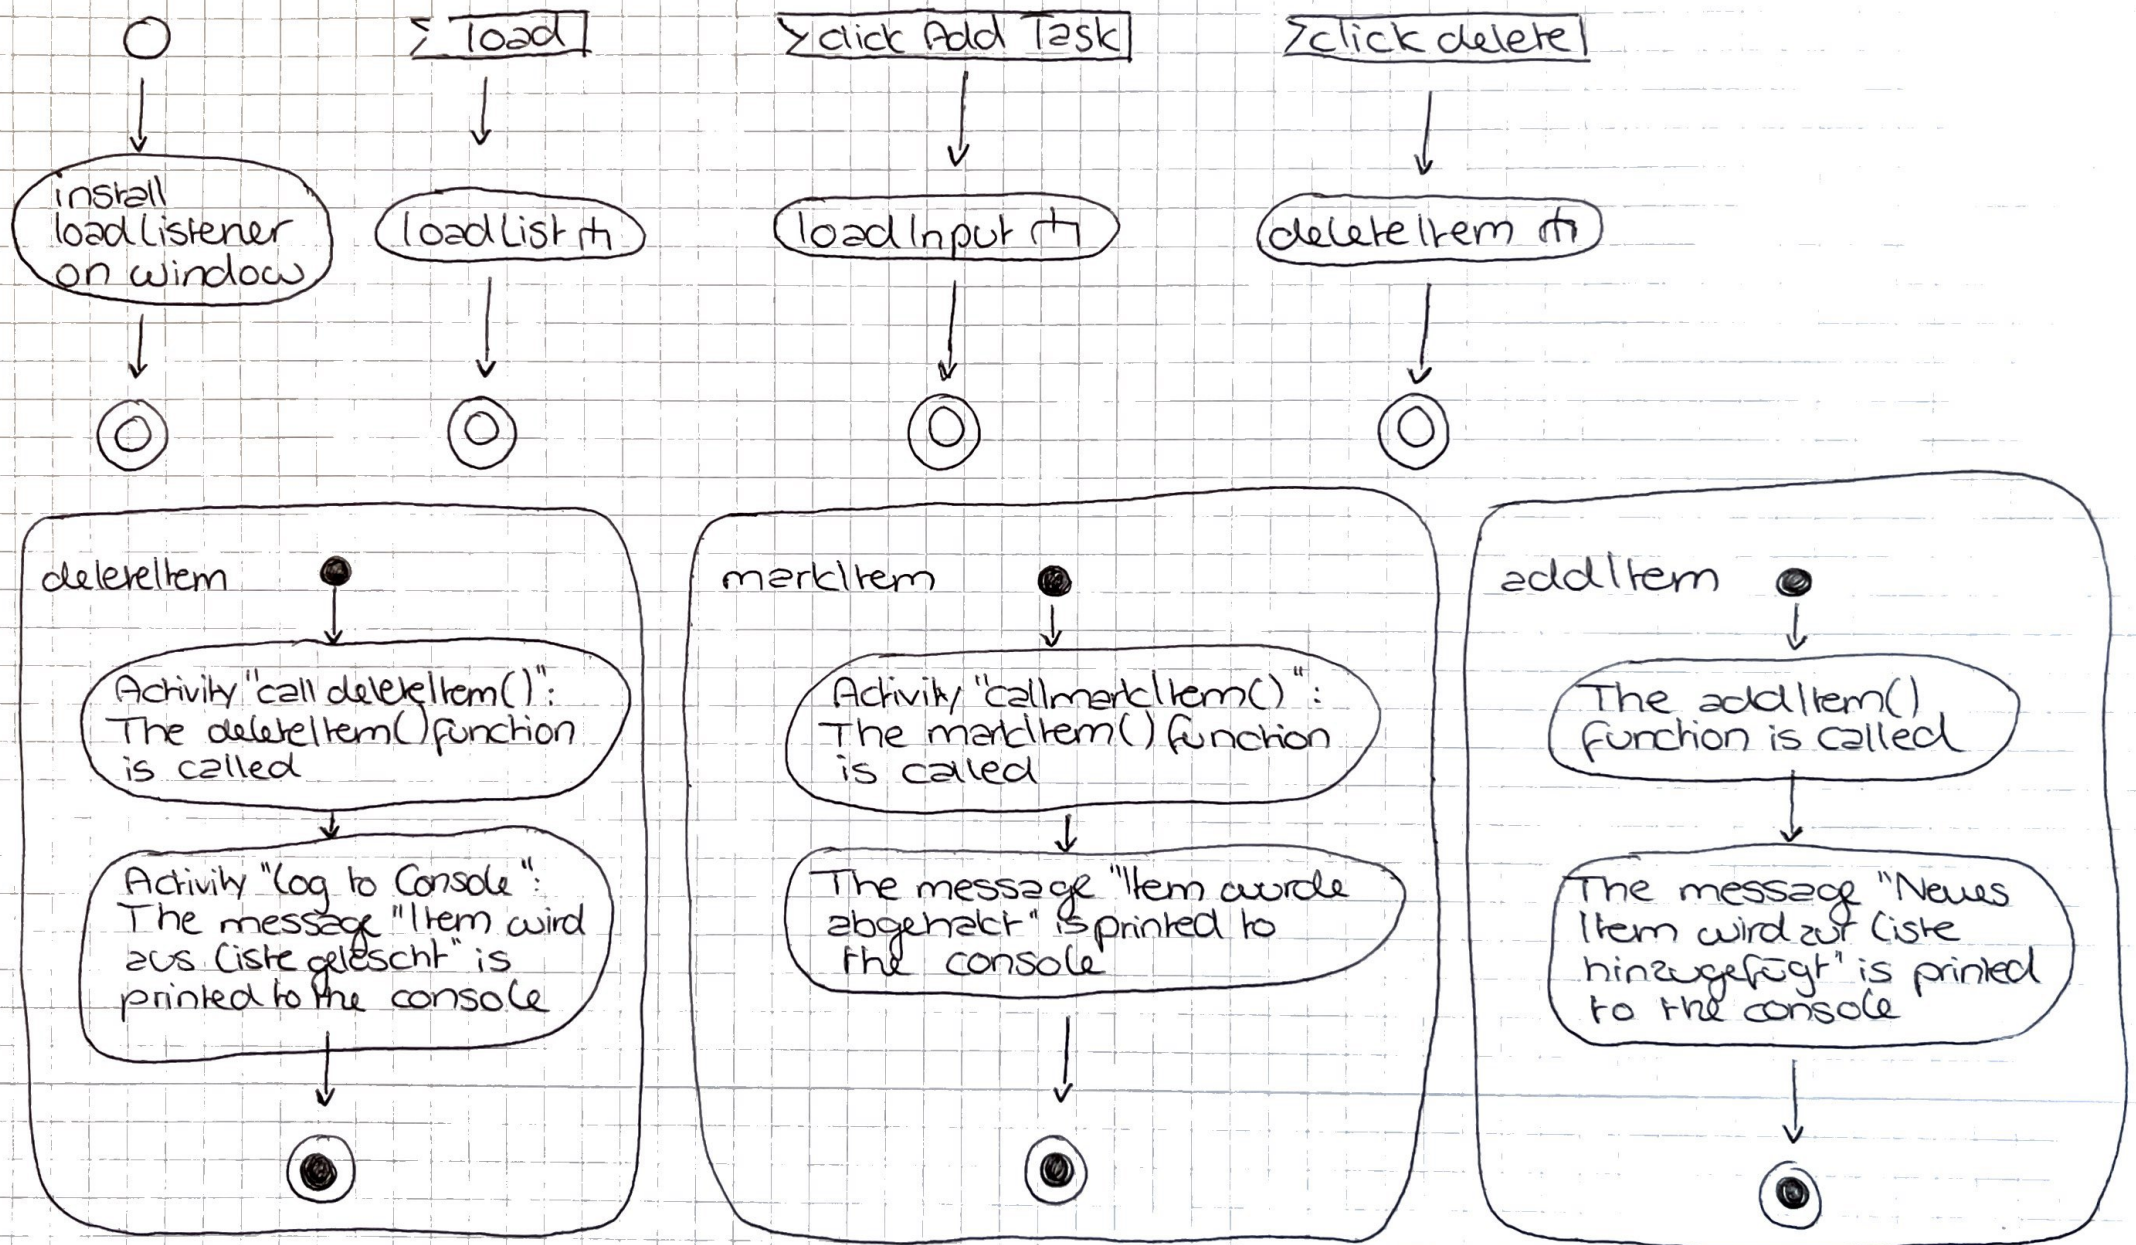 load
click Add Task
click delete
install
loadlistener
on window
loadList
loadInput
deleteItem
deleteItem
Activity "call deleteItem()":
The deleteItem() function
is called
Activity "Log to Console":
The message "Item wird
aus Liste gelöscht" is
printed to the console
markItem
Activity "callmarkItem()":
The markItem() function
is called
The message "Item wurde
abgehakt" is printed to
the console
addItem
The addItem()
function is called
The message "Neues
Item wird zur Liste
hinzugefügt" is printed
to the console